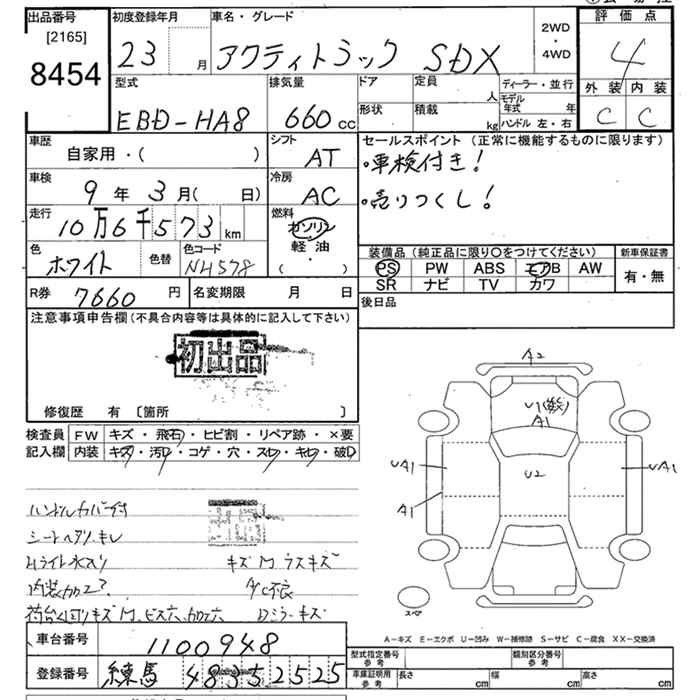 出品番号
[2165]
8454
初度登録年月
23 月
車名・グレード
アクティトラック SDX
2WD
・
4WD
評価点
4
外装 内装
C C
型式
EBD-HA8
排気量
660 cc
ドア
形状
定員 人
積載 kg
ディーラー・並行
モデル年式 年
ハンドル 左・右
車歴
自家用・( )
シフト
AT
車検
9年3月( 日)
冷房
AC
走行
10万6千573 km
燃料
ガソリン
軽油
( ・ )
色
ホワイト
色替
色コード
NH578
R券 7660 円
名変期限 月 日
セールスポイント(正常に機能するものに限ります)
・車検付き!
・売りつくし!
装備品(純正品に限り○をつけてください)
PS PW ABS エアB AW
SR ナビ TV カワ
新車保証書
有・無
後日品
注意事項申告欄(不具合内容等は具体的に記入して下さい)
初出品
修復歴 有 〔箇所 〕
検査員 FW キズ・飛石・ヒビ割・リペア跡・×要
記入欄 内装 キズ・汚レ・コゲ・穴・スレ・キレ・破レ
ハンドルカバー付
シートヘタリ・キレ
Hライト水入り
キズM ラスキズ
内装加工?
A/C不良
荷台回りキズM、ビス穴、加工穴 Dミラーキズ
A2
U1
A1
UA1
A1
U2
UA1
スペア
A-キズ E-エクボ U-凹み W-補修跡 S-サビ C-腐食 XX-交換済
車台番号 1100948
登録番号 練馬 48 2525
型式指定番号 参考
類別区分番号 参考
車庫証明用 参考 長さ cm 幅 cm 高さ cm